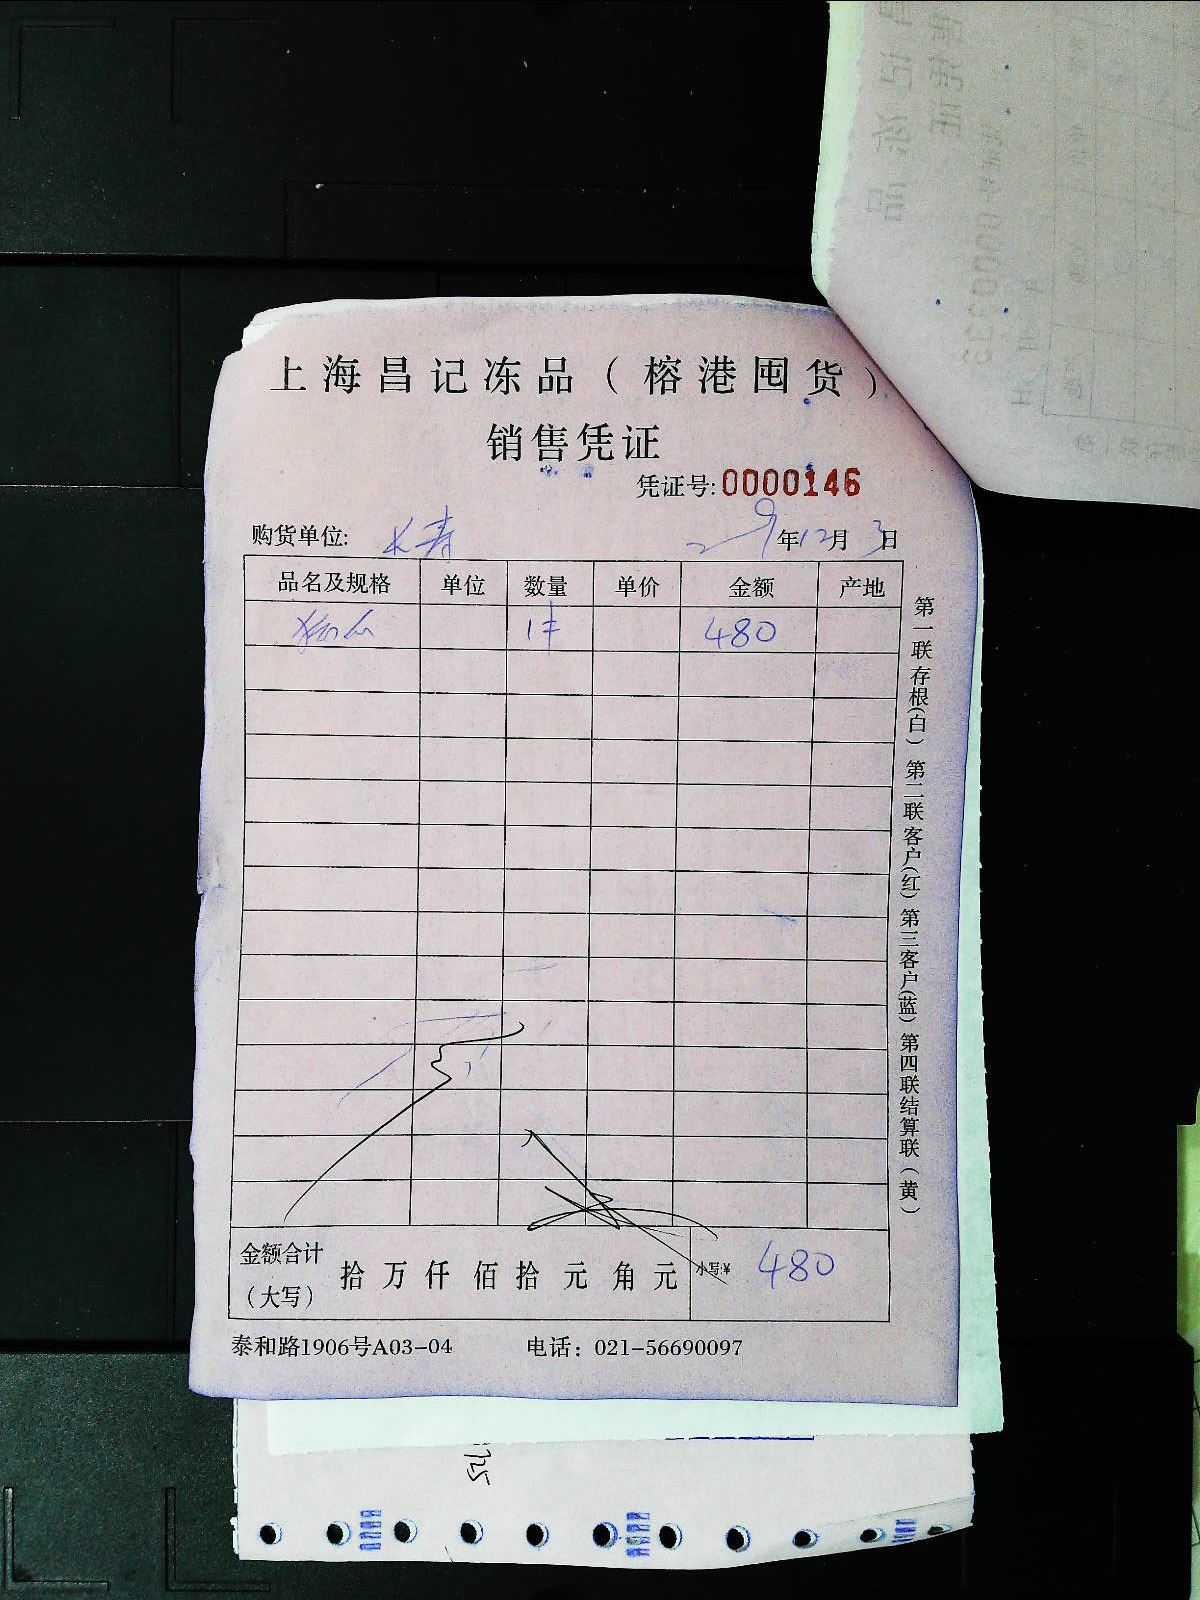 上海昌记冻品（榕港囤货）
销售凭证
凭证号:0000146
购货单位: 长寿 年12月3日
品名及规格 单位 数量 单价 金额 产地
1件 480
金额合计（大写） 拾万仟佰拾元角元 小写:¥ 480
泰和路1906号A03-04 电话：021-56690097
第一联存根(白) 第二联客户(红) 第三客户(蓝) 第四联结算联(黄)